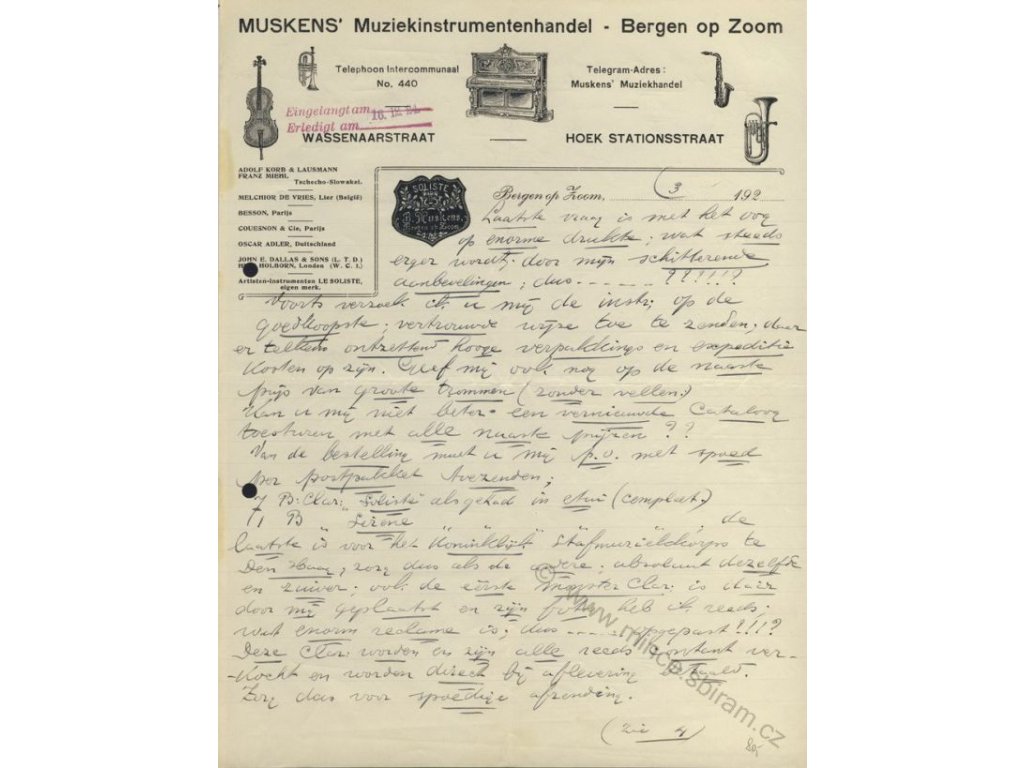 MUSKENS' Muziekinstrumentenhandel - Bergen op Zoom
Telephoon Intercommunaal
No. 440
Telegram-Adres:
Muskens' Muziekhandel
Eingelangt am
Erledigt am
WASSENAARSTRAAT
HOEK STATIONSSTRAAT
ADOLF KORB & LAUSMANN
FRANZ MIEHL
Tschecho-Slowakei.
MELCHIOR DE VRIES, Lier (België)
BESSON, Parijs
COUESNON & Cie, Parijs
OSCAR ADLER, Duitschland
JOHN E. DALLAS & SONS (L. T. D.)
HOLBORN, Londen (W. C. I.)
Artisten-instrumenten LE SOLISTE,
eigen merk.
SOLISTE
Muskens
Bergen op Zoom
Bergen op Zoom, (3 192
Laatste vraag is met het oog
op enorme drukte; wat steeds
erger wordt; door mijn schitterende
aanbevelingen; dus - - - - - ??!!!!?
Voorts verzoek ik u mij de instr; op de
goedkoopste; vertrouwde wijze toe te zenden; daar
er telkens ontzettend hooge verpakkings en expeditie
kosten op zijn. Geef mij ook nog op de naaste
prijs van groote trommen (zonder vellen.)
Kan u mij niet beter een vernieuwde Cataloog
toesturen met alle naaste prijzen ??
Van de bestelling moet u mij p.o. met spoed
per postpakket toezenden;
7 B. Clar; "Soliste" als gehad in etui (compleet.)
1 B " Sirene " " " ; de
laatste is voor het Koninklijk Stafmuziekkorps te
Den Haag; zorg dus als de andere; absoluut dezelfde
en zuiver; ook de eerste Clar; is daar
door mij geplaatst en zijn foto heb ik reeds;
wat enorm reclame is; dus - - - - - opgepast!!!?
Deze Clar: worden en zijn alle reeds contant ver-
-kocht en worden direct bij aflevering betaald.
Zorg dus voor spoedige afzending.
(Zie 4)
© www.mince.sbiram.cz